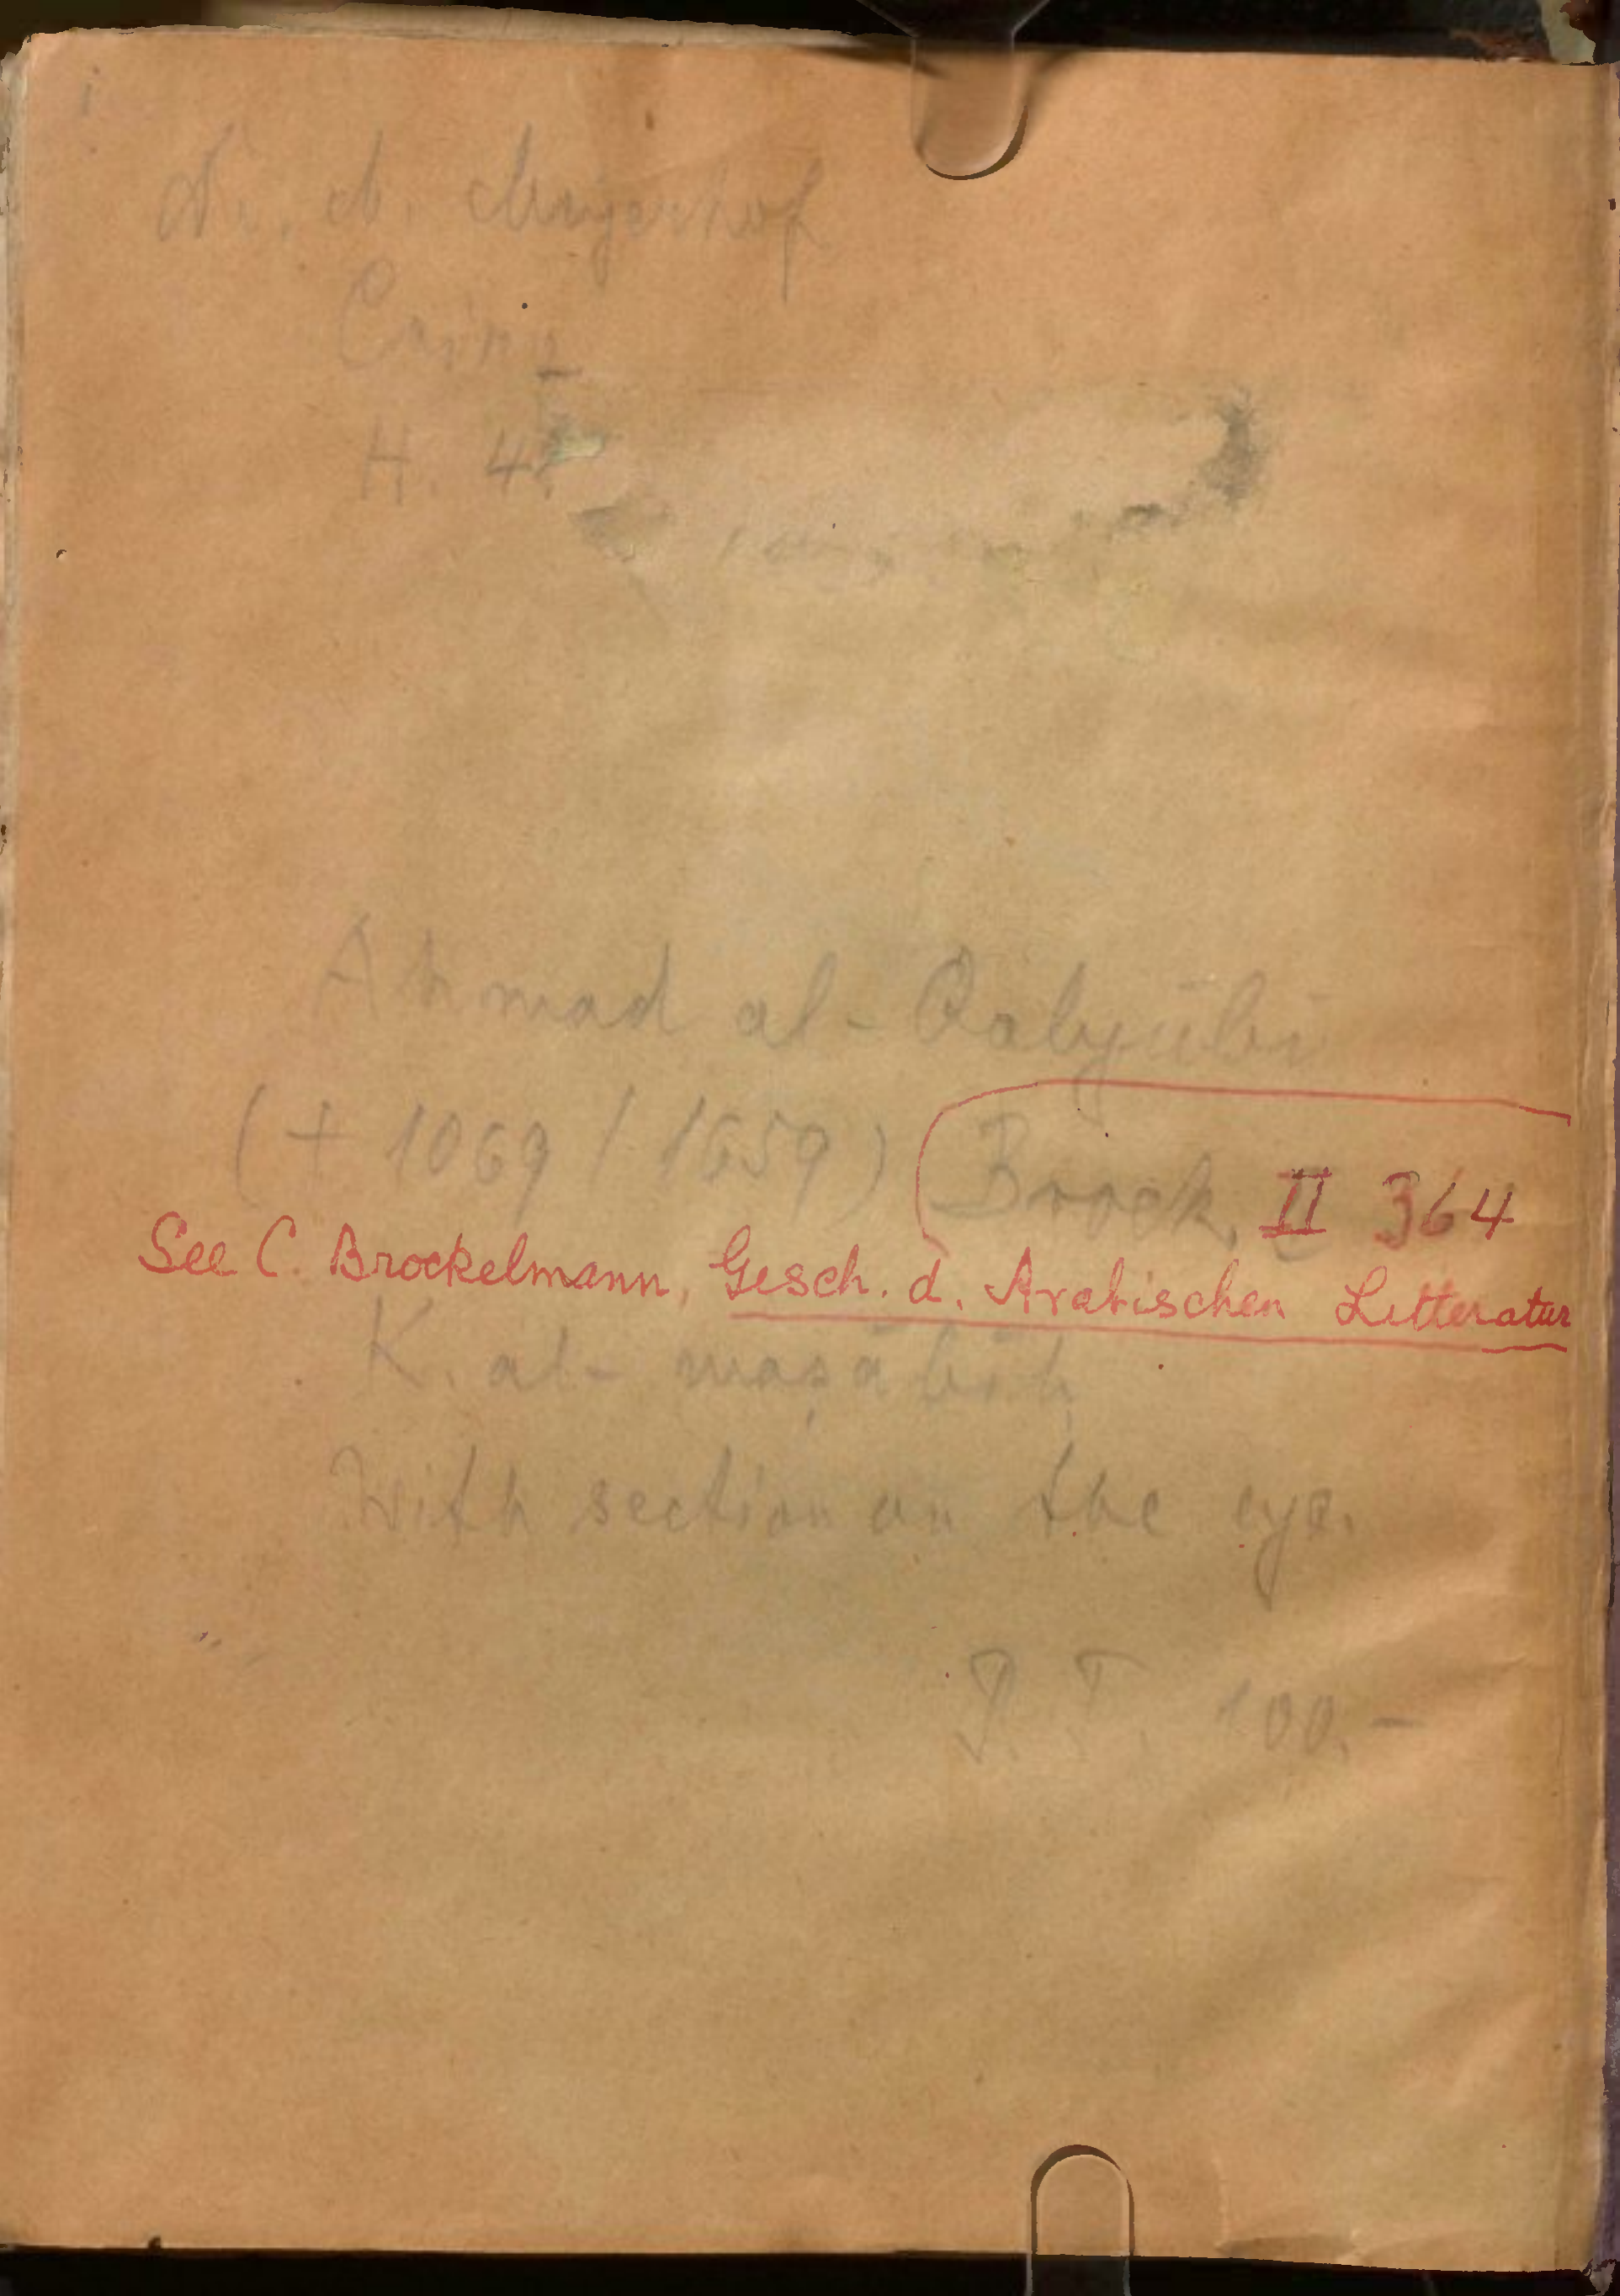 i
Dr. M. Meyerhof
Cairo
H. 4
Ahmad al-Qalyūbī
(+ 1069 / 1659) Brock. II 364
See C. Brockelmann, Gesch. d. Arabischen Litteratur
K. al-maṣābīḥ
With section on the eye.
P.T. 100.-